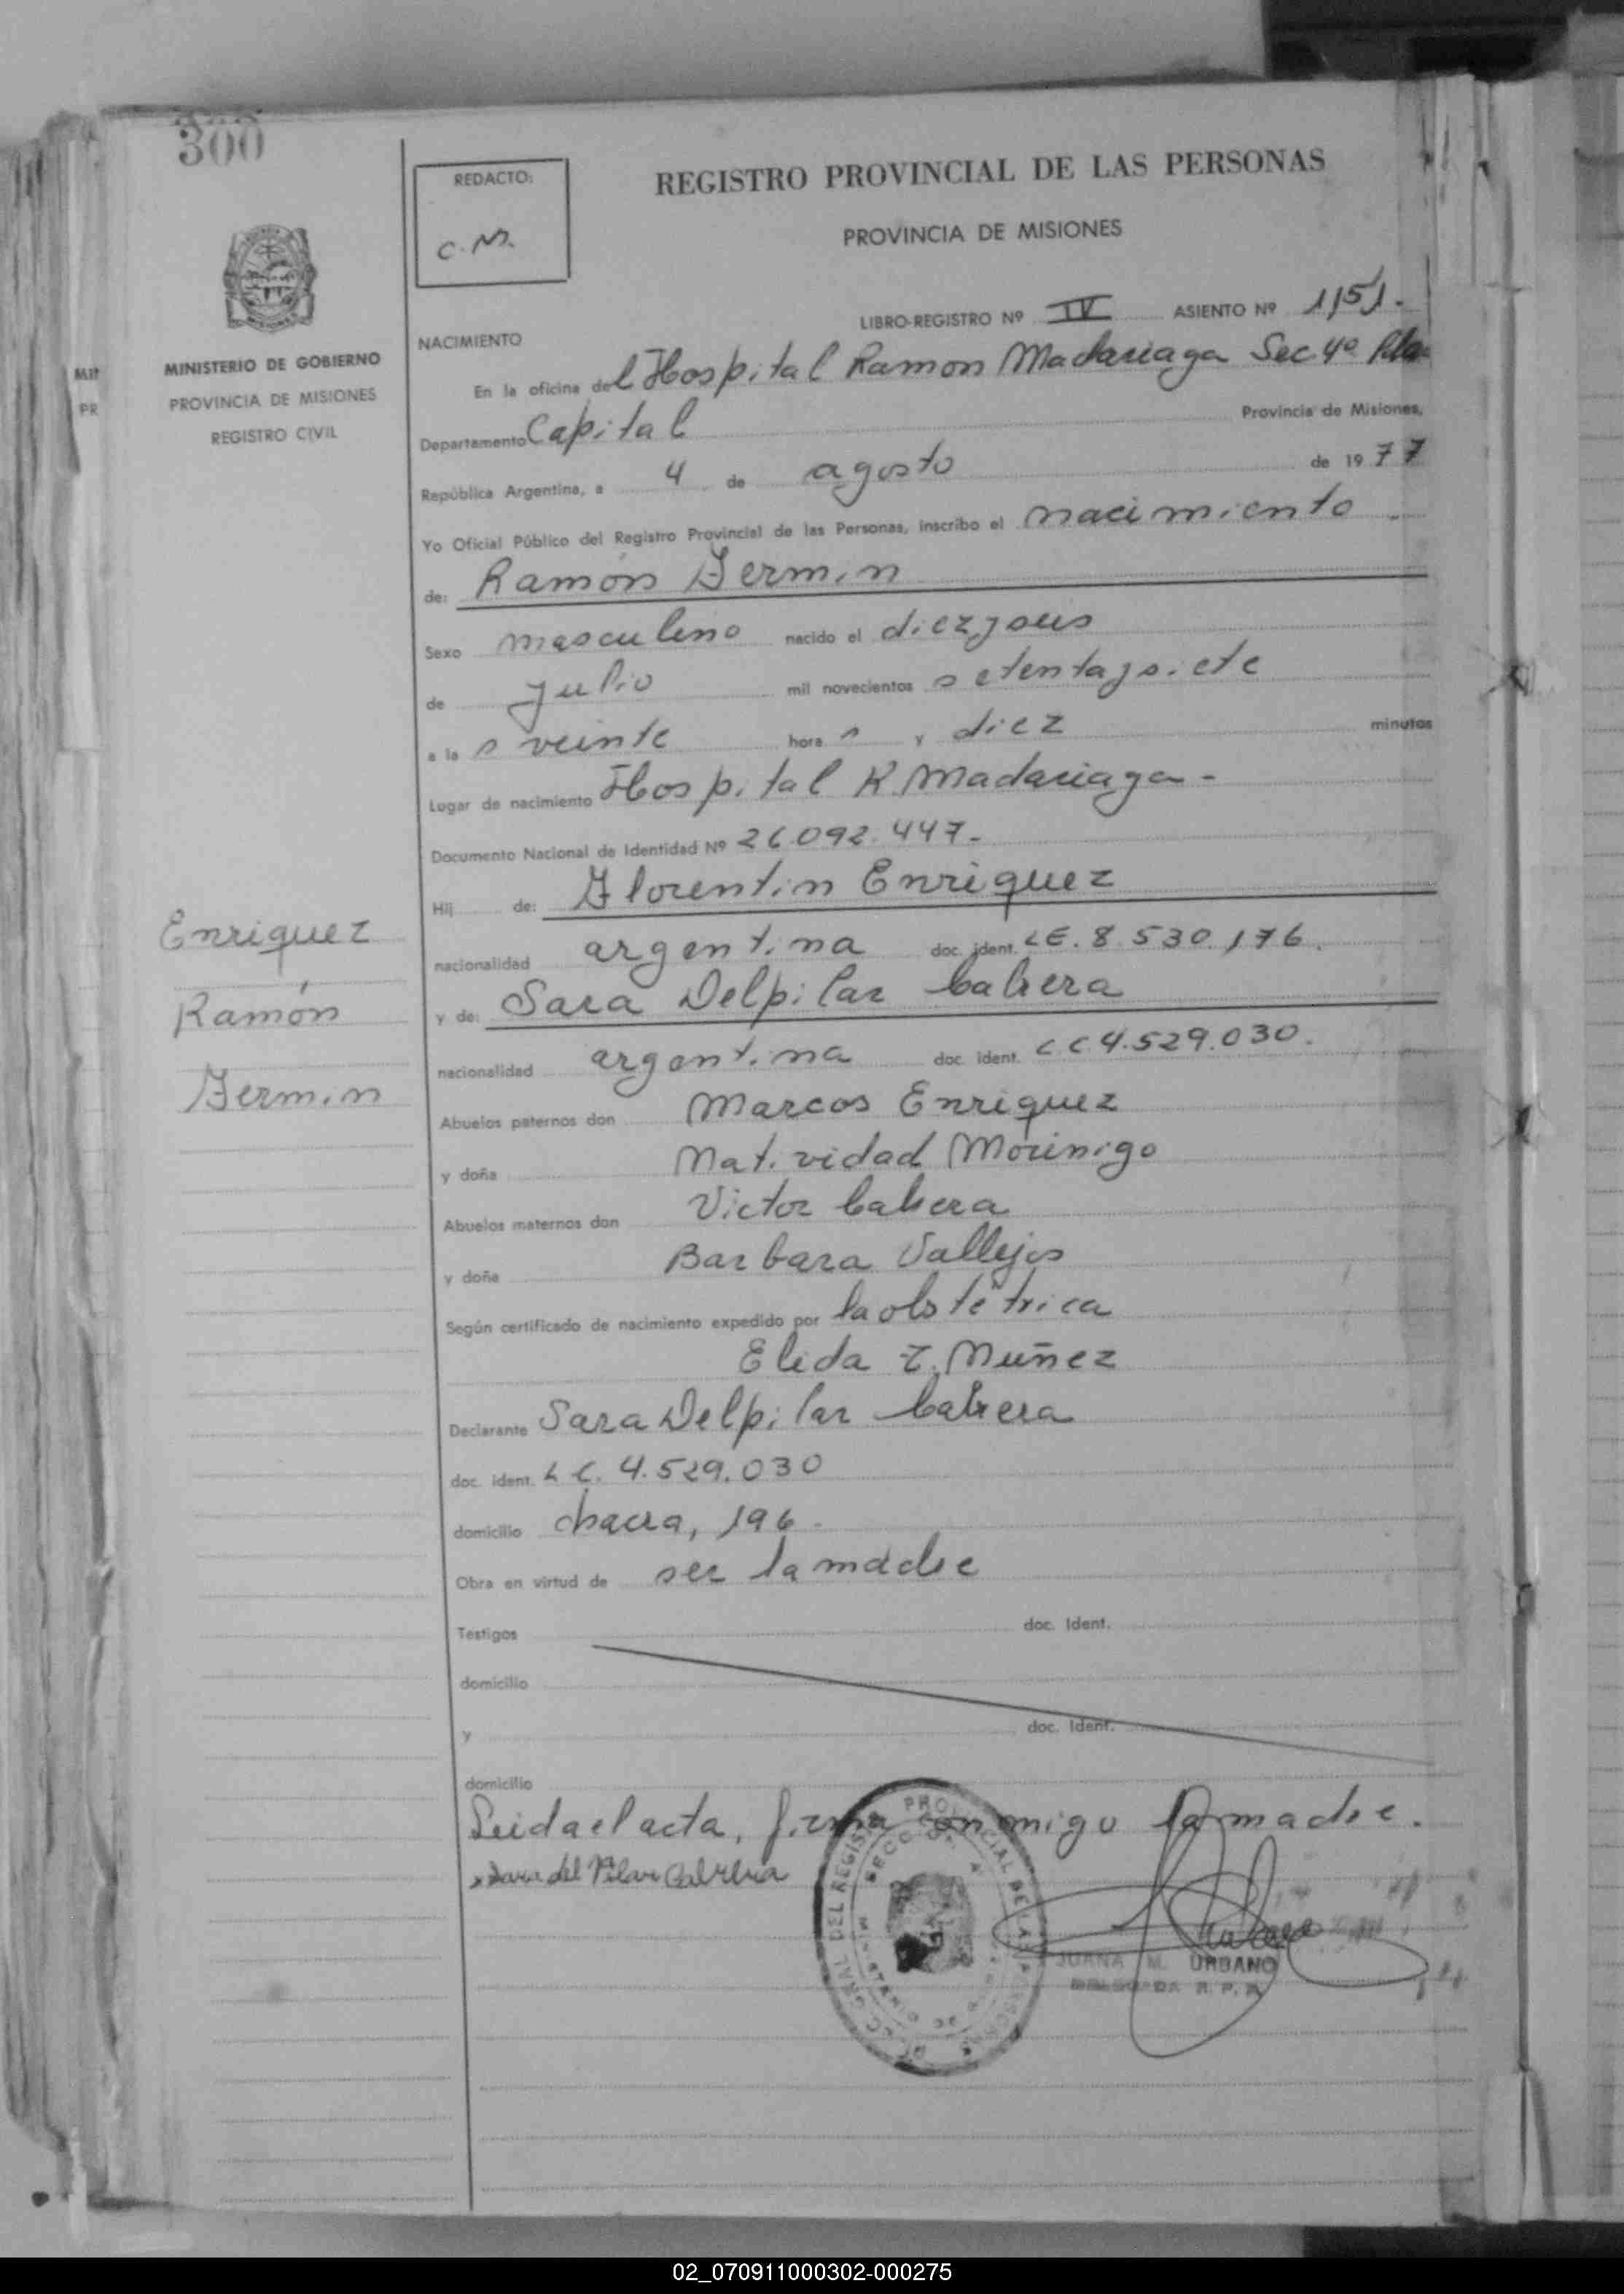 300
REDACTO:
C. M.
REGISTRO PROVINCIAL DE LAS PERSONAS
PROVINCIA DE MISIONES
MINISTERIO DE GOBIERNO
PROVINCIA DE MISIONES
REGISTRO CIVIL
LIBRO-REGISTRO Nº IV ASIENTO Nº 1151.
NACIMIENTO
En la oficina del Hospital Ramon Madariaga Sec 4º
Departamento Capital Provincia de Misiones,
República Argentina, a 4 de agosto de 1977
Yo Oficial Público del Registro Provincial de las Personas, inscribo el nacimiento
de: Ramón Fermin
Sexo masculino nacido el diezyseis
de julio mil novecientos setentaysiete
a las veinte horas y diez minutos
Lugar de nacimiento Hospital R Madariaga -
Documento Nacional de Identidad Nº 26.092.447-
Hij de: Florentin Enriquez
nacionalidad argentina doc. ident. LE. 8.530.176.
y de: Sara Delpilar Cabrera
nacionalidad argentina doc. ident. L C. 4.529.030.
Abuelos paternos don Marcos Enriquez
y doña Natividad Morinigo
Abuelos maternos don Victor Cabrera
y doña Barbara Vallejos
Según certificado de nacimiento expedido por la obstétrica
Elida Z. Muñez
Declarante Sara Delpilar Cabrera
doc. ident. L C. 4.529.030
domicilio chacra, 196.
Obra en virtud de ser la madre
Testigos doc. Ident.
domicilio
y doc. Ident.
domicilio
Leida el acta, firma conmigo la madre.
x Sara del Pilar Cabrera
JUANA M. URBANO
DELEGADA R. P. P.
Enriquez
Ramón
Fermin
MIN
PR
02_070911000302-000275